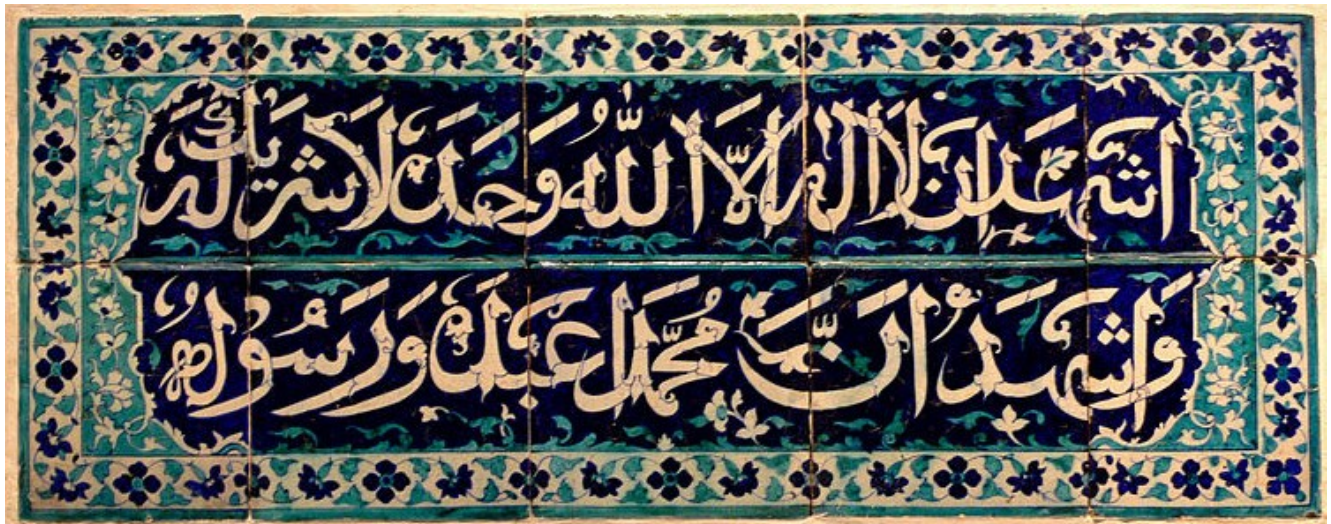 اشهد ان لا اله الا الله وحده لا شريك له
واشهد ان محمدا عبده ورسوله